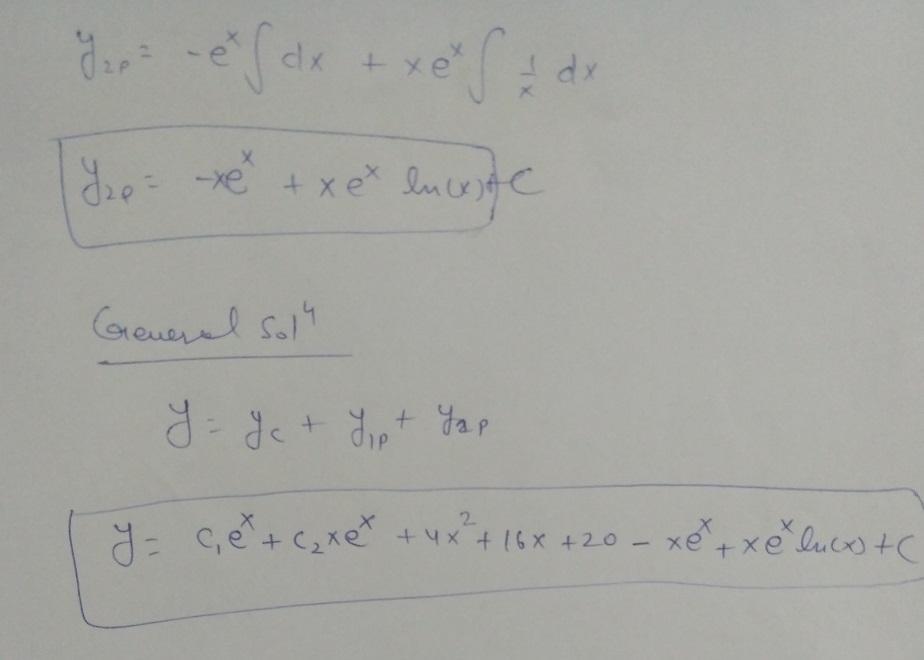 y₂ₚ = -eˣ ∫ dx + xeˣ ∫ 1/x dx
y₂ₚ = -xeˣ + xeˣ ln(x) + C
General Solⁿ
y = y_c + y₁ₚ + y₂ₚ
y = c₁eˣ + c₂xeˣ + 4x² + 16x + 20 - xeˣ + xeˣ ln(x) + C